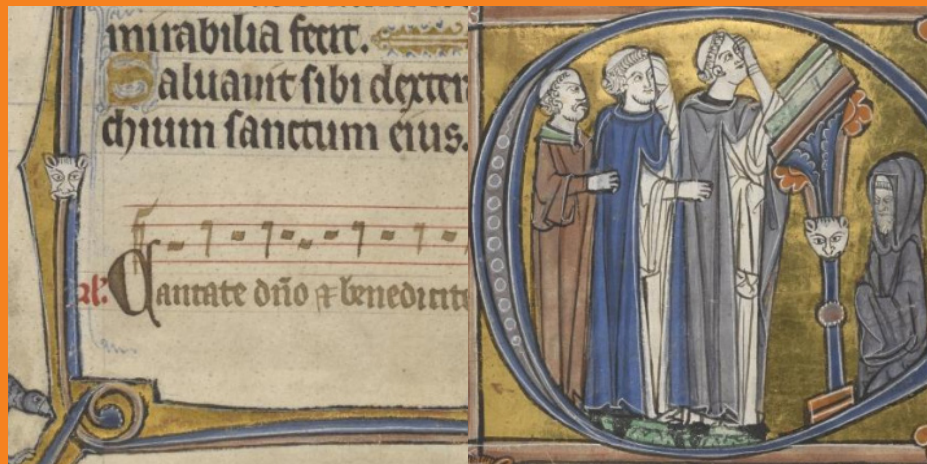 mirabilia fecit.
Saluauit sibi dexter
chium sanctum eius.
Cantate dño ⁊ benedicite